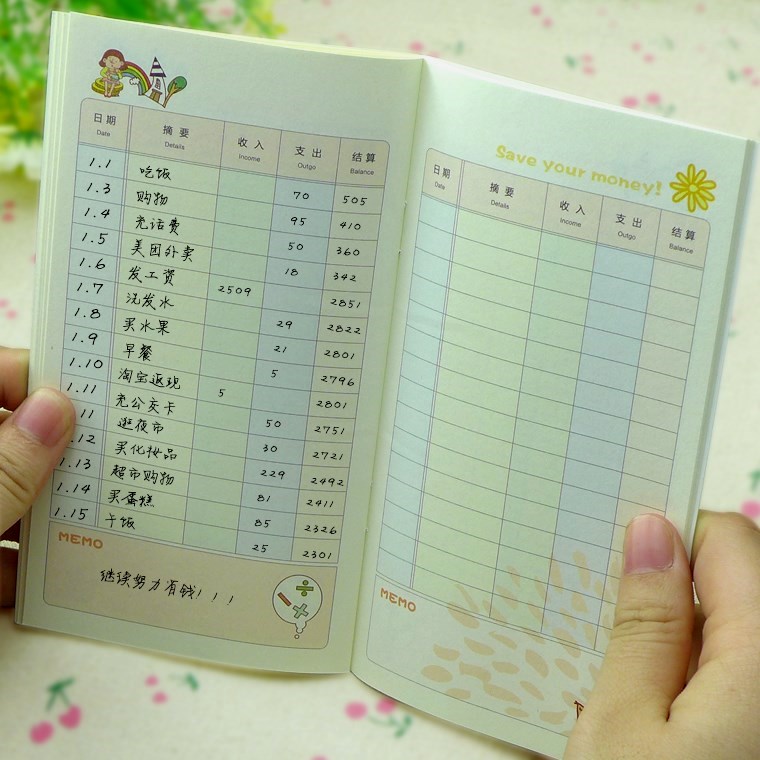 日期 摘要 收入 支出 结算
Date Details Income Outgo Balance
1.1 吃饭 70 505
1.3 购物 95 410
1.4 充话费 50 360
1.5 美团外卖 18 342
1.6 发工资 2509 2851
1.7 洗发水 29 2822
1.8 买水果 21 2801
1.9 早餐 5 2796
1.10 淘宝返现 5 2801
1.11 充公交卡 50 2751
11 逛夜市 30 2721
12 买化妆品 229 2492
1.13 超市购物 81 2411
1.14 买蛋糕 85 2326
1.15 午饭 25 2301
MEMO
继续努力有钱!!!
Save your money!
日期 摘要 收入 支出 结算
Date Details Income Outgo Balance
MEMO